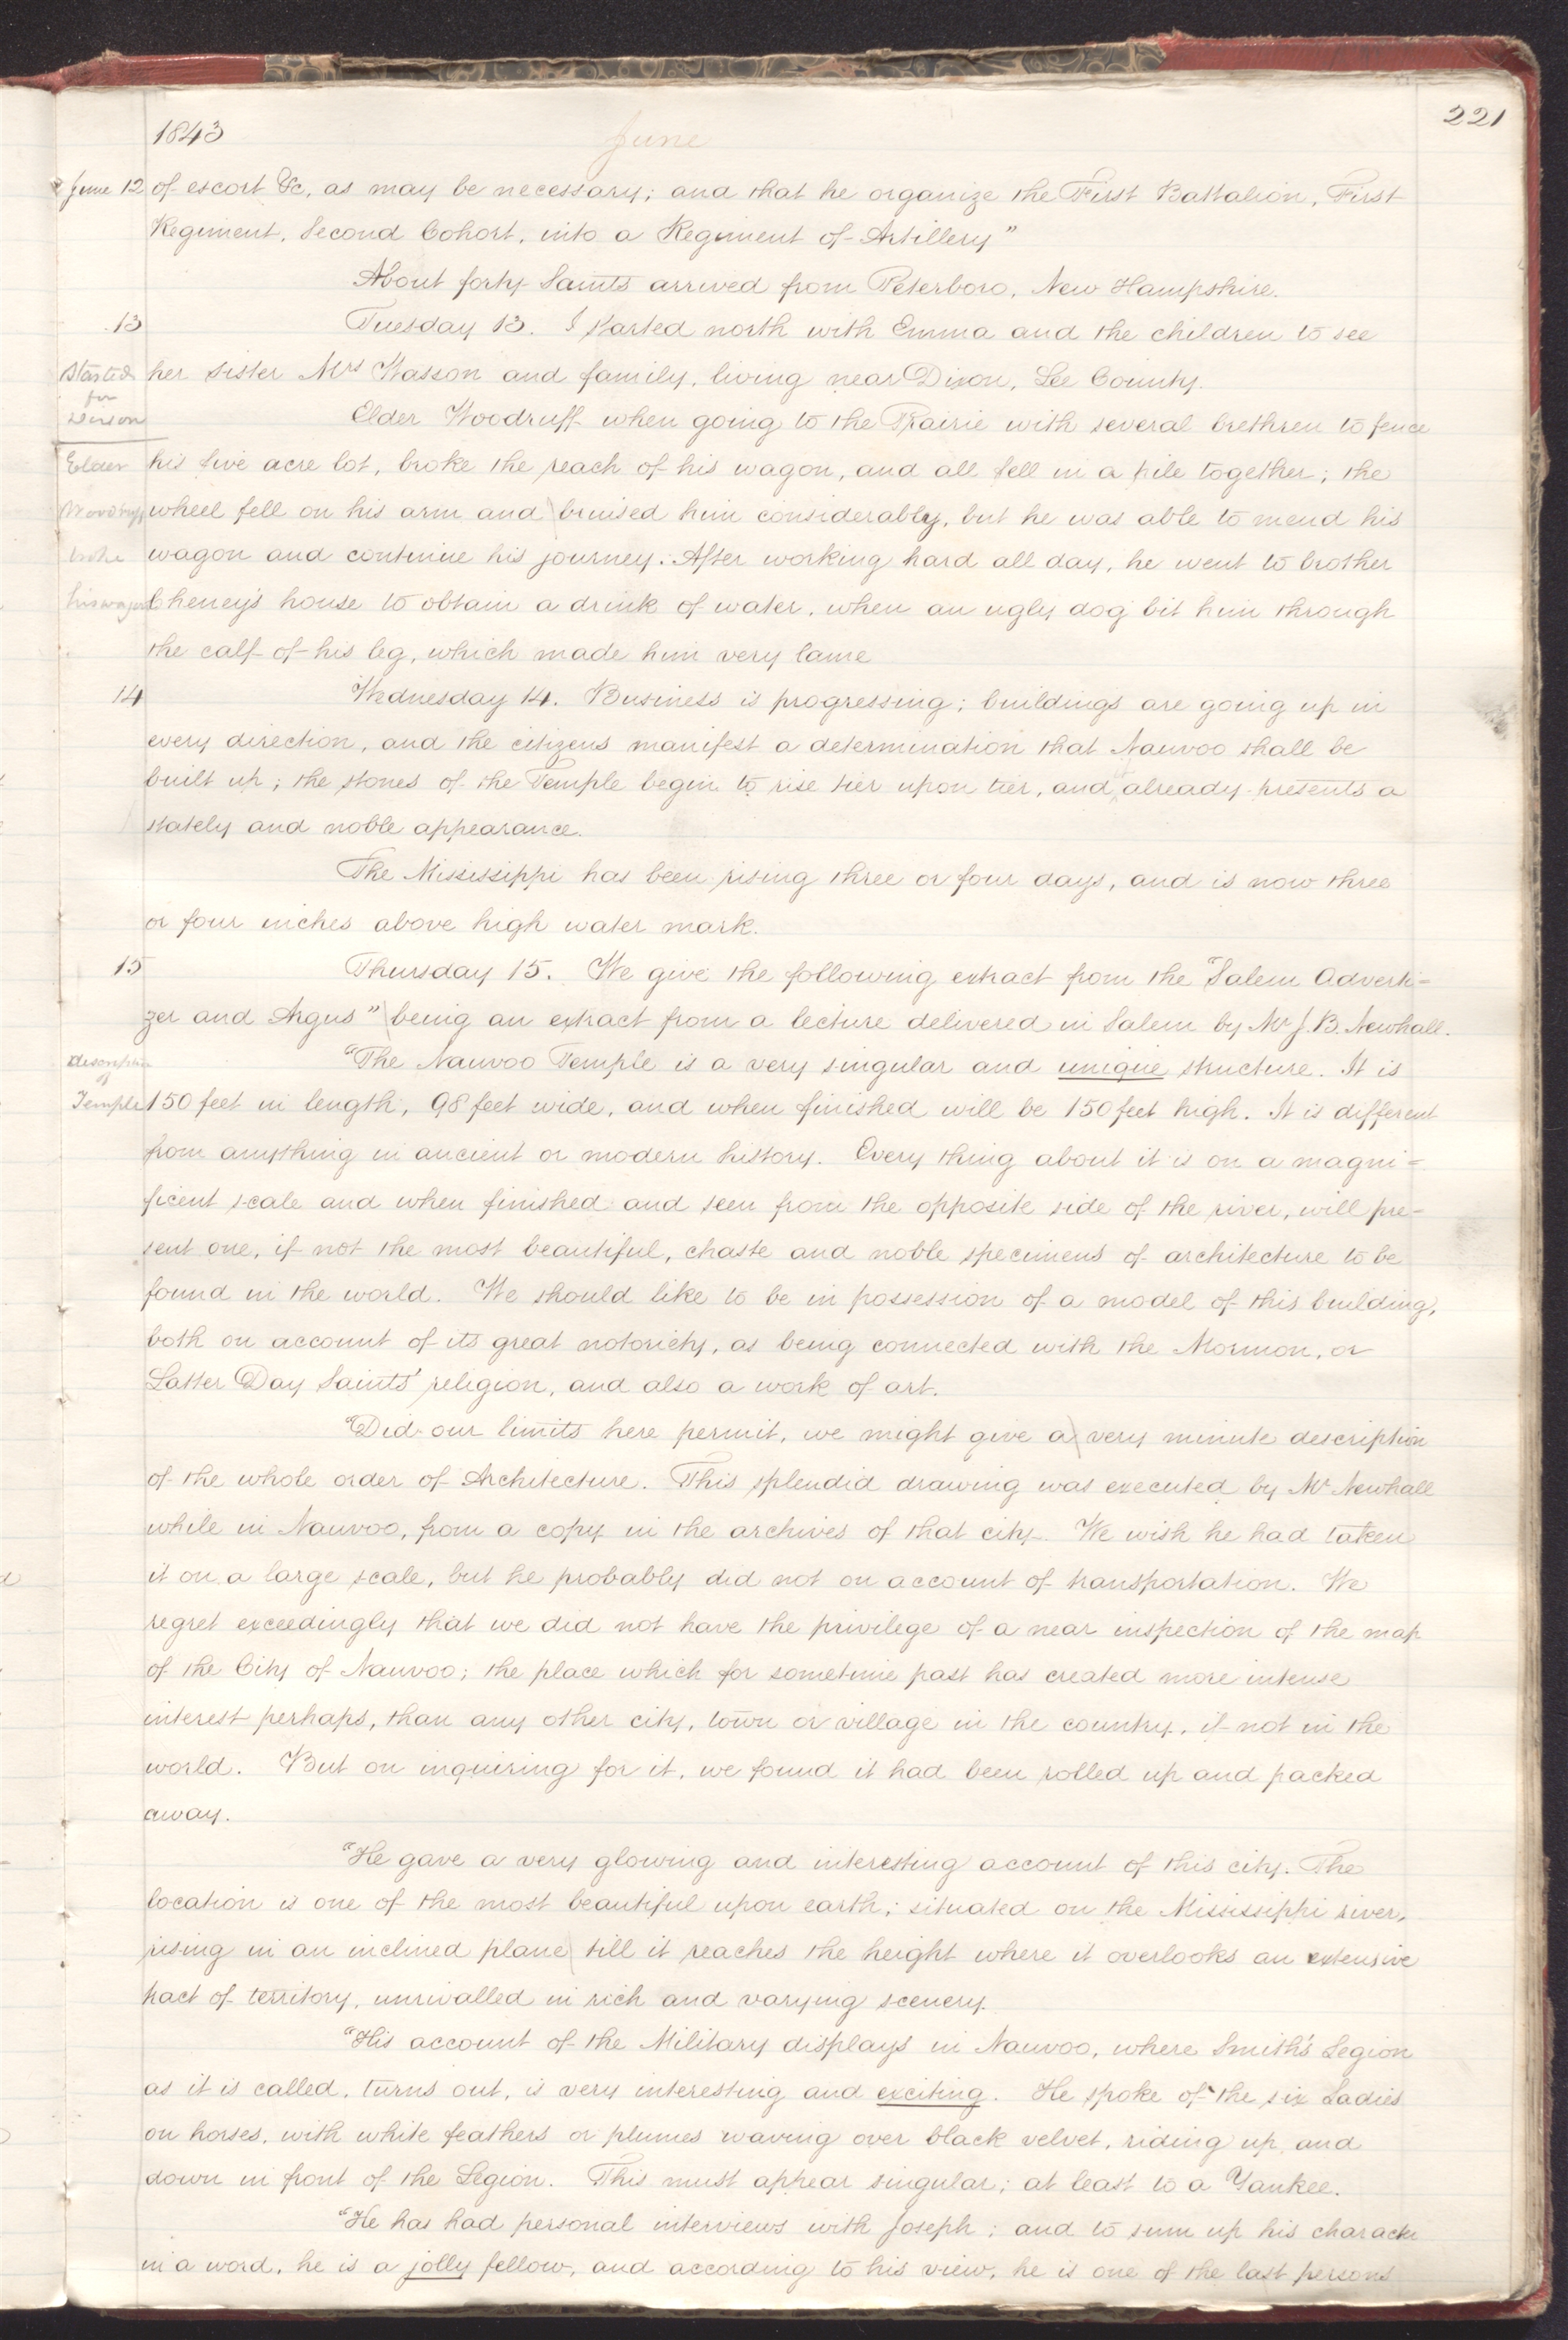 221
1843 June
June 12 of escort &c, as may be necessary; and that he organize the First Battalion, First
Regiment, Second Cohort, into a Regiment of Artillery"
About forty Saints arrived from Peterboro, New Hampshire.
13 Tuesday 13. I started north with Emma and the children to see
Started her sister Mrs Wasson and family, living near Dixon, Lee County.
for
Dixon Elder Woodruff when going to the Prairie with several brethren to fence
Elder his five acre lot, broke the reach of his wagon, and all fell in a pile together; the
Woodruff wheel fell on his arm and bruised him considerably, but he was able to mend his
broke wagon and continue his journey. After working hard all day, he went to brother
his wagon Cheney's house to obtain a drink of water, when an ugly dog bit him through
the calf of his leg, which made him very lame
14 Wednesday 14. Business is progressing; buildings are going up in
every direction, and the citizens manifest a determination that Nauvoo shall be
built up; the stones of the Temple begin to rise tier upon tier, and already presents a
stately and noble appearance.
The Mississippi has been rising three or four days, and is now three
or four inches above high water mark.
15 Thursday 15. We give the following extract from the "Salem Adverti=
zer and Argus" being an extract from a lecture delivered in Salem by Mr J. B. Newhall.
description "The Nauvoo Temple is a very singular and unique structure. It is
of
Temple 150 feet in length, 98 feet wide, and when finished will be 150 feet high. It is different
from anything in ancient or modern history. Every thing about it is on a magni=
ficent scale and when finished and seen from the opposite side of the river, will pre-
sent one, if not the most beautiful, chaste and noble specimens of architecture to be
found in the world. We should like to be in possession of a model of this building,
both on account of its great notoriety, as being connected with the Mormon, or
Latter Day Saints' religion, and also a work of art.
"Did our limits here permit, we might give a very minute description
of the whole order of Architecture. This splendid drawing was executed by Mr Newhall
while in Nauvoo, from a copy in the archives of that city. We wish he had taken
it on a large scale, but he probably did not on account of transportation. We
regret exceedingly that we did not have the privilege of a near inspection of the map
of the City of Nauvoo; the place which for sometime past has created more intense
interest perhaps, than any other city, town or village in the country, if not in the
world. But on inquiring for it, we found it had been rolled up and packed
away.
"He gave a very glowing and interesting account of this city. The
location is one of the most beautiful upon earth; situated on the Mississippi river,
rising in an inclined plane till it reaches the height where it overlooks an extensive
tract of territory, unrivalled in rich and varying scenery.
"His account of the Military displays in Nauvoo, where Smith's Legion
as it is called, turns out, is very interesting and exciting. He spoke of the six Ladies
on horses, with white feathers or plumes waving over black velvet, riding up and
down in front of the Legion. This must appear singular; at least to a Yankee.
"He has had personal interviews with Joseph; and to sum up his character
in a word, he is a jolly fellow, and according to his view, he is one of the last persons